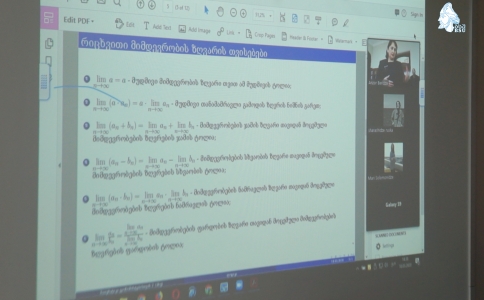 Edit PDF
Edit Text
Add Image
Link
Crop Pages
Header & Footer
Watermark
Sign In
რიცხვითი მიმდევრობის ზღვარის თვისებები
lim a = a - მუდმივი მიმდევრობის ზღვარი თვით ამ მუდმივის ტოლია;
n→∞
lim (a · aₙ) = a · lim aₙ - მუდმივი თანამამრავლი გამოდის ზღვრის ნიშნის გარეთ;
n→∞ n→∞
lim (aₙ + bₙ) = lim aₙ + lim bₙ - მიმდევრობების ჯამის ზღვარი თავიდან მოცემული
n→∞ n→∞ n→∞
მიმდევრობების ზღვრების ჯამის ტოლია;
lim (aₙ − bₙ) = lim aₙ − lim bₙ - მიმდევრობების სხვაობის ზღვარი თავიდან მოცემული
n→∞ n→∞ n→∞
მიმდევრობების ზღვრების სხვაობის ტოლია;
lim (aₙ · bₙ) = lim aₙ · lim bₙ - მიმდევრობების ნამრავლის ზღვარი თავიდან მოცემული
n→∞ n→∞ n→∞
მიმდევრობების ზღვრების ნამრავლის ტოლია;
lim aₙ/bₙ = lim aₙ / lim bₙ - მიმდევრობების ფარდობის ზღვარი თავიდან მოცემული მიმდევრობების
ზღვრების ფარდობის ტოლია;